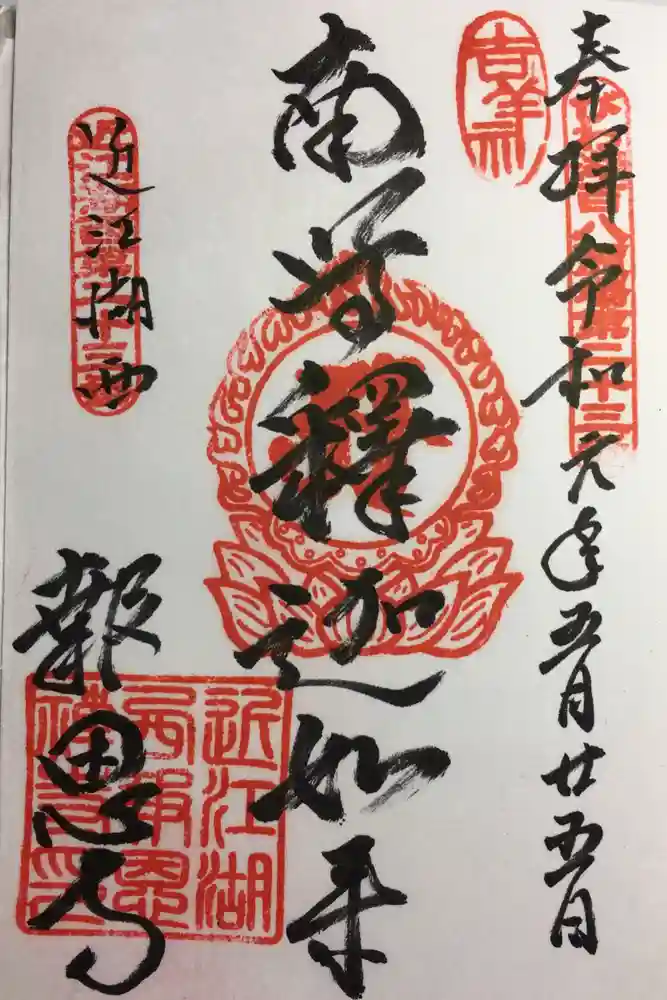 奉拝令和元年五月廿五日
吉祥
南無釋迦如来
近江湖西
報恩寺
近江湖
西報恩
禅寺印